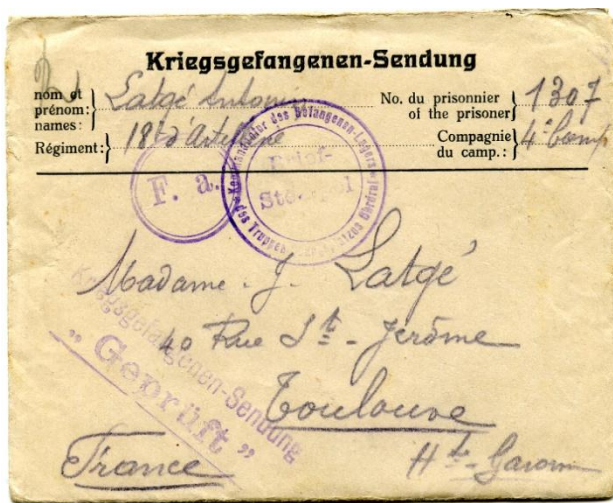 Kriegsgefangenen-Sendung
nom et
prénom:
names:
Latgé Antonin
No. du prisonnier
of the prisoner
1307
Régiment:
18e d'Artillerie
Compagnie
du camp.:
4e Comp
F. a.
Kommandantur des Gefangenen-Lagers
des Truppen-Übungsplatzes Ohrdruf
Brief-
Stempel
Madame J. Latgé
40 Rue St-Jérôme
Toulouse
Hte-Garonne
France
Kriegsgefangenen-Sendung
„Geprüft"